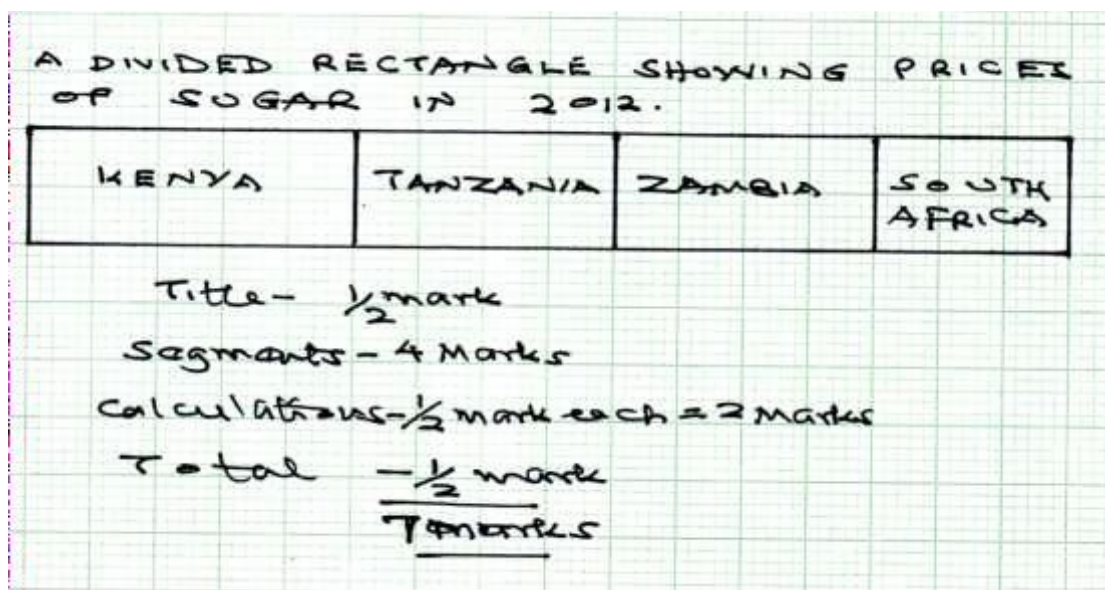 A DIVIDED RECTANGLE SHOWING PRICES
OF SUGAR IN 2012.
KENYA TANZANIA ZAMBIA SOUTH
AFRICA
Title - 1/2 mark
Segments - 4 Marks
Calculations - 1/2 mark each = 2 Marks
Total - 1/2 mark
7 marks